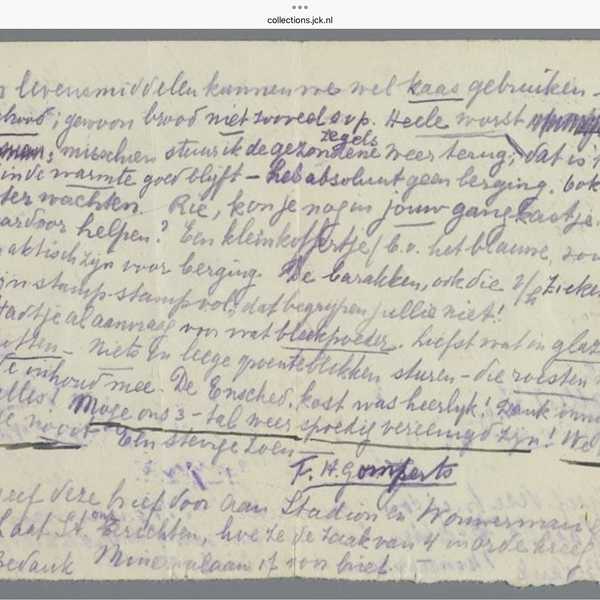 collections.jck.nl
levensmiddelen kunnen we wel kaas gebruiken -
gewoon brood niet zooveel s.v.p. Heele worst
zegels
misschien stuur ik de gezondene weer terug, dat is
in de warmte goed blijft - heb absoluut geen berging. Ook
wachten. Rie, kon je nog in jouw gangkastje
helpen? Een klein koffertje (b.v. het blauwe, zou
praktisch zijn voor berging. De barakken, ook die v/h Zieken
stamp-stampvol, dat begrijpen jullie niet!
al aanvraag voor wat bleekpoeder. Liefst wat in glaz
niets in leege groenteblikken sturen - die roesten
inhoud mee. De Ensched. kost was heerlijk! Dank
alles! Moge ons 3-tal weer spoedig vereenigd zijn! We
nooit Een stevige zoen
F. H. Gomperts
Geef deze brief door aan Stadion en Wouwerman
Laat St. ons berichten, hoe ze de zaak van 4 in orde kreeg
Bedank Minervalaan 17 voor brief.